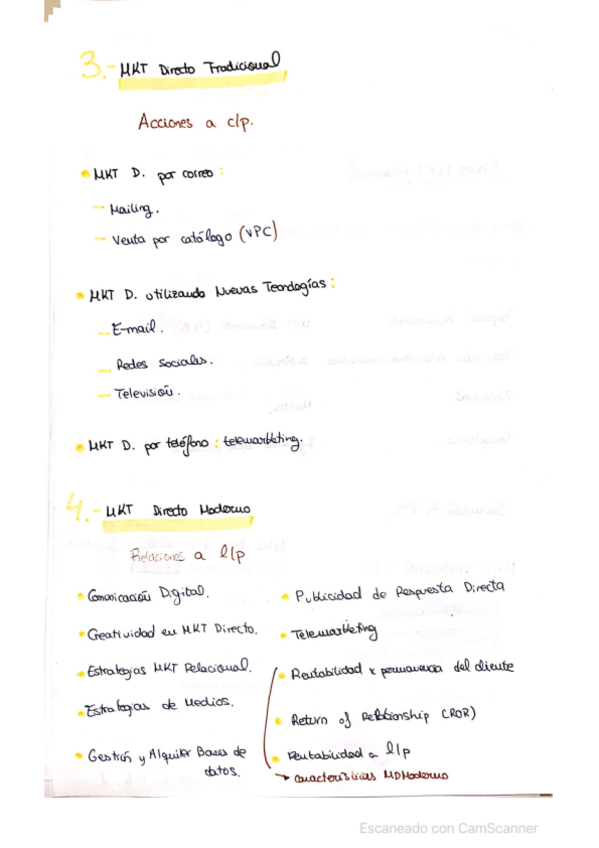 3.- MKT Directo Tradicional
Acciones a c/p.
• MKT D. por correo :
– Mailing.
– Venta por catálogo (VPC)
• MKT D. utilizando Nuevas Tecnologías :
– E-mail.
– Redes Sociales.
– Televisión.
• MKT D. por teléfono : telemarketing.
4.- MKT Directo Moderno
Relaciones a l/p
• Comunicación Digital.
• Creatividad en MKT Directo.
• Estrategias MKT Relacional.
• Estrategias de Medios.
• Gestión y Alquiler Bases de
datos.
• Publicidad de Respuesta Directa
• Telemarketing
• Rentabilidad x permanencia del cliente
• Return of Relationship (ROR)
• Rentabilidad a l/p
→ características MD Moderno
Escaneado con CamScanner